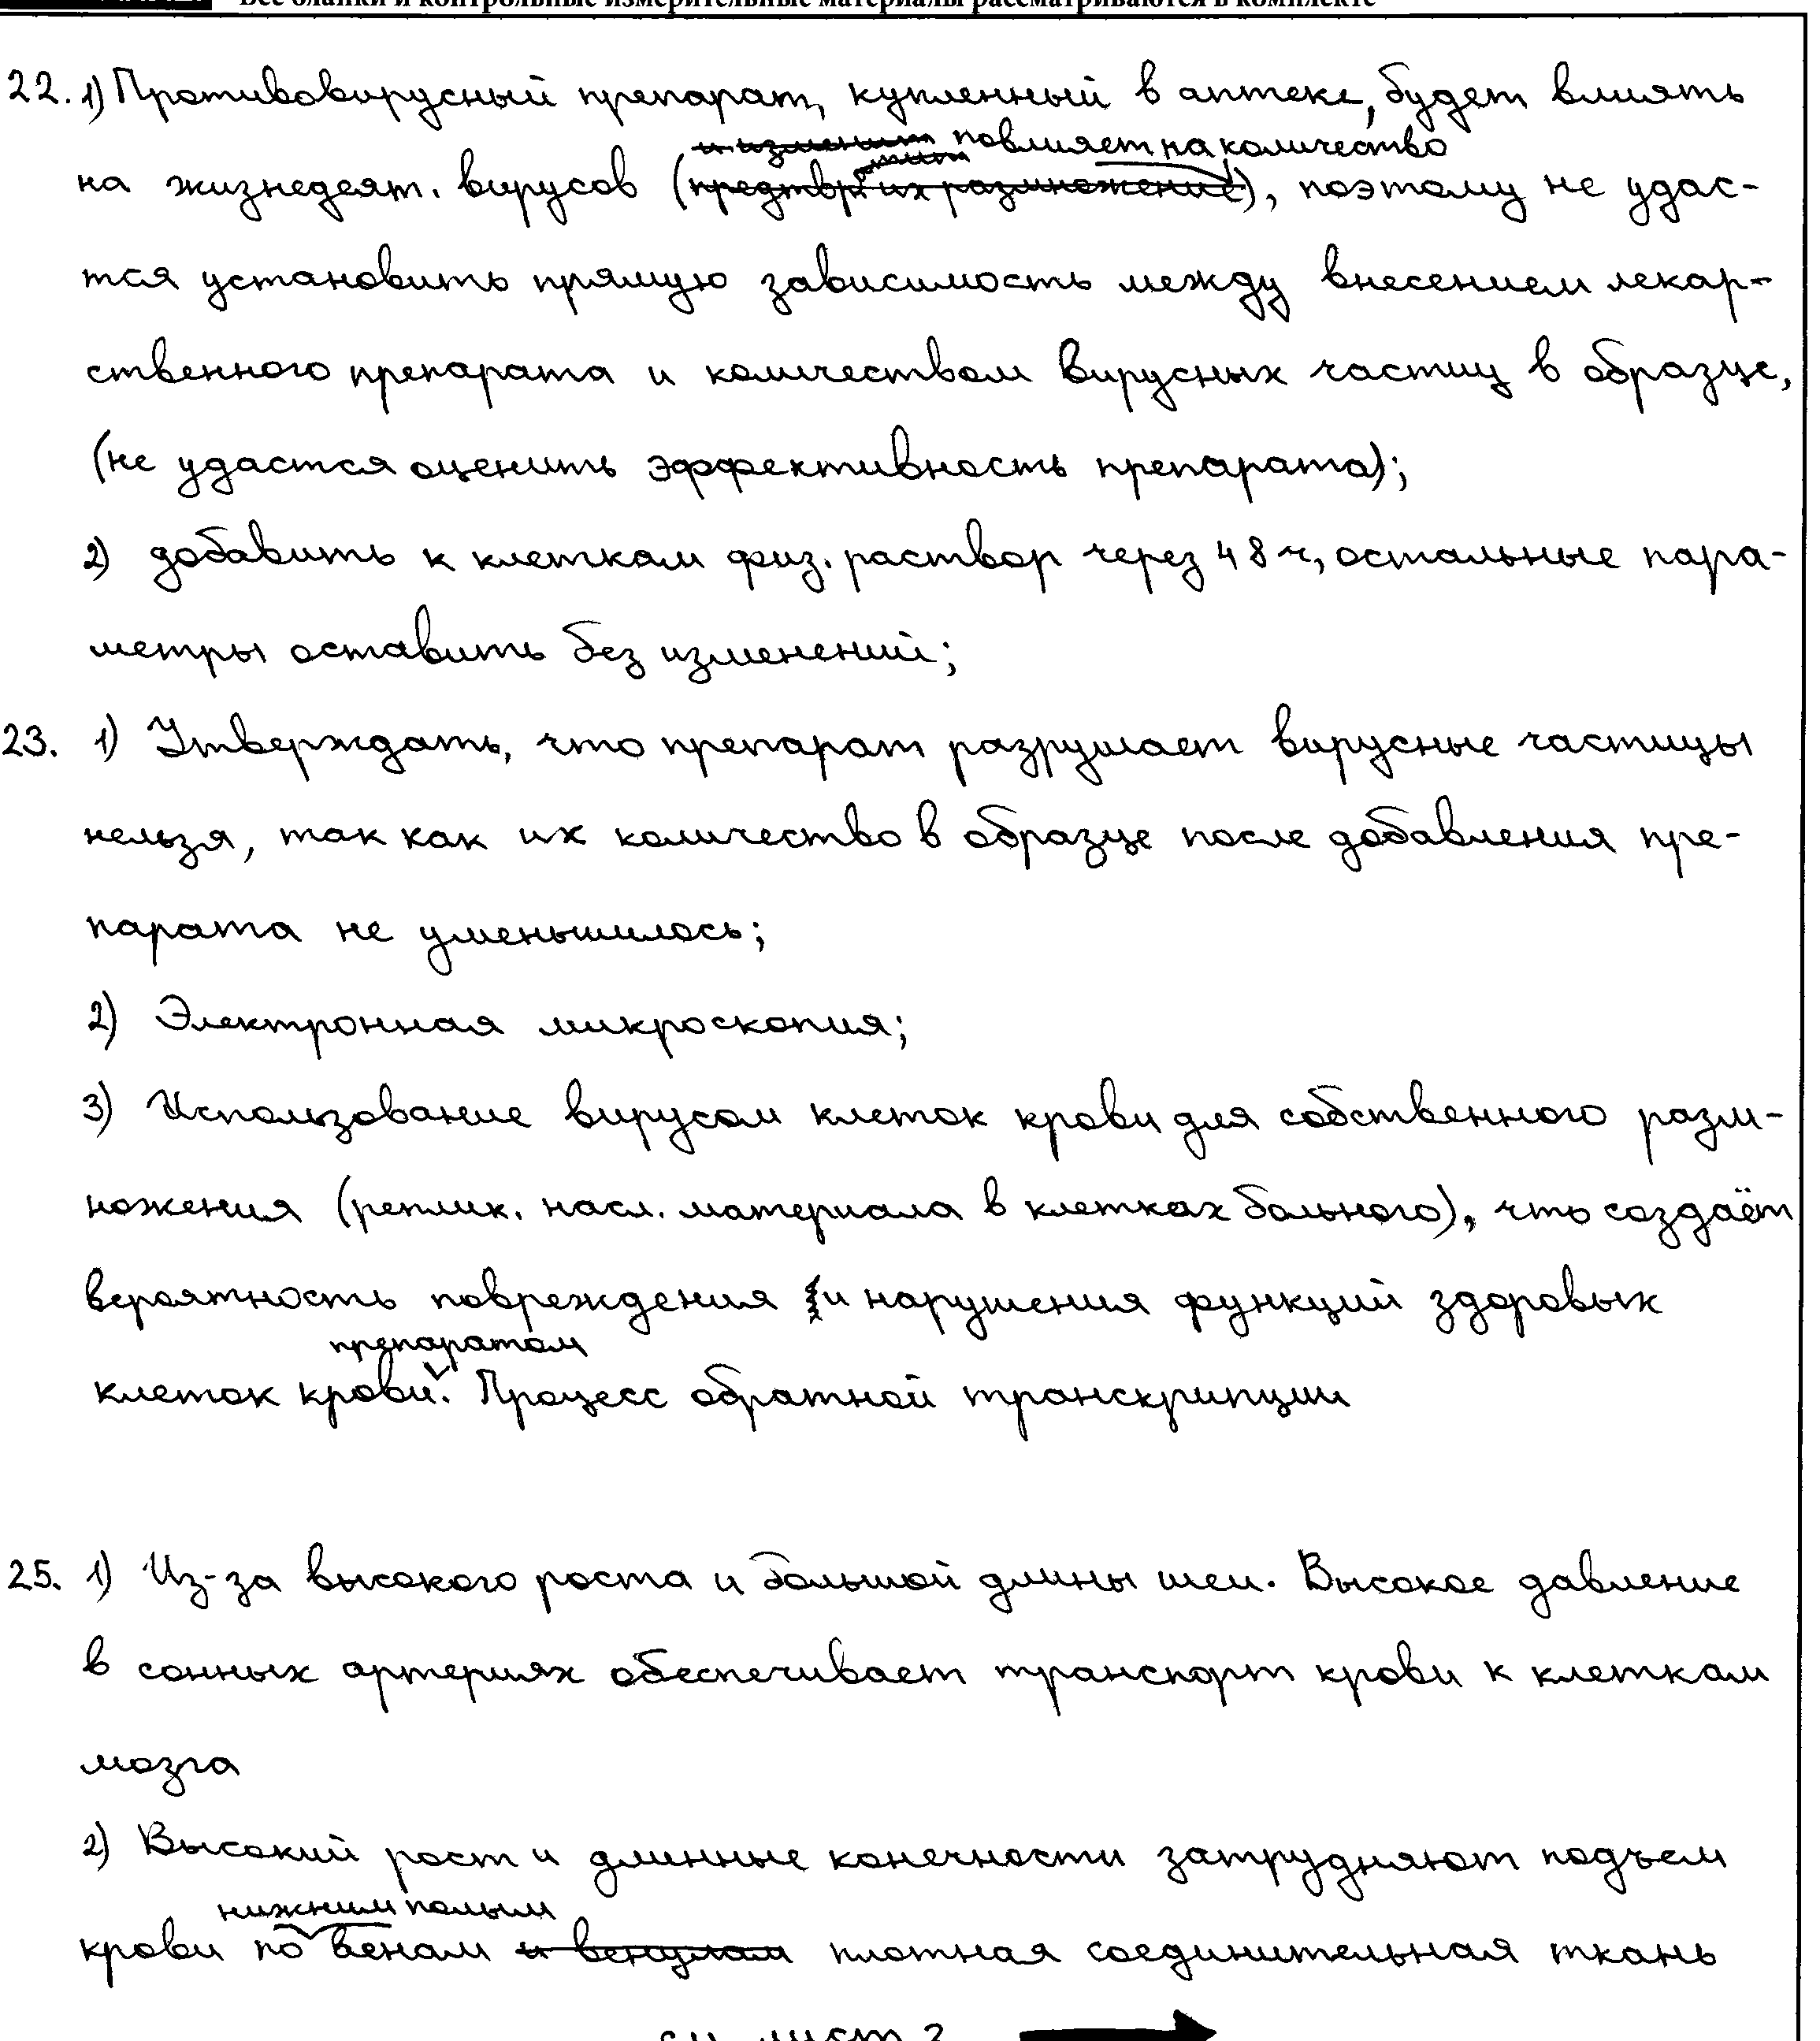 Все бланки и контрольные измерительные материалы рассматриваются в комплекте
22. 1) Противовирусный препарат, купленный в аптеке, будет влиять
повлияет на количество
на жизнедеят. вирусов (предотвратит их размножение), поэтому не удас-
тся установить прямую зависимость между внесением лекар-
ственного препарата и количеством вирусных частиц в образце,
(не удастся оценить эффективность препарата);
2) добавить к клеткам физ. раствор через 48 ч, остальные пара-
метры оставить без изменений;
23. 1) Утверждать, что препарат разрушает вирусные частицы
нельзя, так как их количество в образце после добавления пре-
парата не уменьшилось;
2) Электронная микроскопия;
3) Использование вирусом клеток крови для собственного разм-
ножения (реплик. насл. материала в клетках больного), что создаёт
вероятность повреждения и нарушения функций здоровых
препаратом
клеток крови. Процесс обратной транскрипции
25. 1) Из-за высокого роста и большой длины шеи. Высокое давление
в сонных артериях обеспечивает транспорт крови к клеткам
мозга
2) Высокий рост и длинные конечности затрудняют подъем
нижним полым
крови по венам и венулам плотная соединительная ткань
см. лист 2